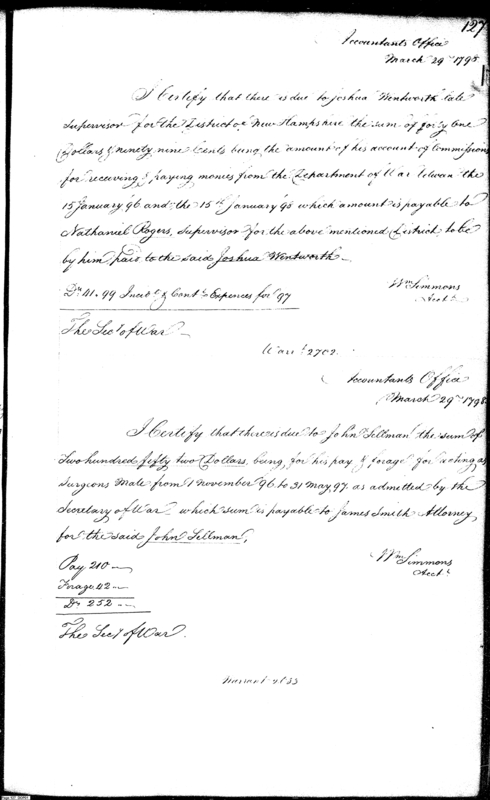 127
Accountants Office
March 29th 1798
I Certify that there is due to Joshua Wentworth late
Supervisor for the District of New Hampshire the sum of forty One
Dollars & ninety nine Cents being the amount of his account of Commissions
for receiving & paying monies from the Department of War between the
15 January 96 and the 15th January 98 which amount is payable to
Nathaniel Rogers, Supervisor for the above mentioned District to be
by him paid to the said Joshua Wentworth
Wm Simmons
Acct
Drs 41.99 Incidt & Contt Expences for 97
The Secy of War
Warrt 2702.
Accountants Office
March 29th 1798
I Certify that there is due to John Sellman the sum of
Two hundred fifty two Dollars, being for his pay & forage for acting as
Surgeons Mate from 1 November 96 to 31 May 97. as admitted by the
Secretary of War, which sum is payable to James Smith Attorney
for the said John Sellman,
Wm Simmons
Acct
Pay 210
Forage 42
Ds 252
The Secy of War.
Warrant